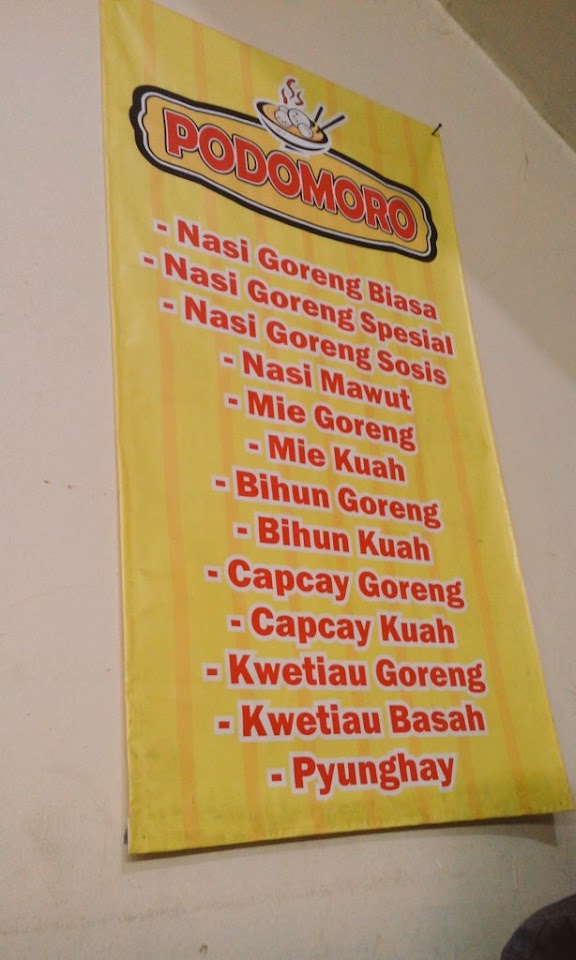 PODOMORO
- Nasi Goreng Biasa
- Nasi Goreng Spesial
- Nasi Goreng Sosis
- Nasi Mawut
- Mie Goreng
- Mie Kuah
- Bihun Goreng
- Bihun Kuah
- Capcay Goreng
- Capcay Kuah
- Kwetiau Goreng
- Kwetiau Basah
- Pyunghay